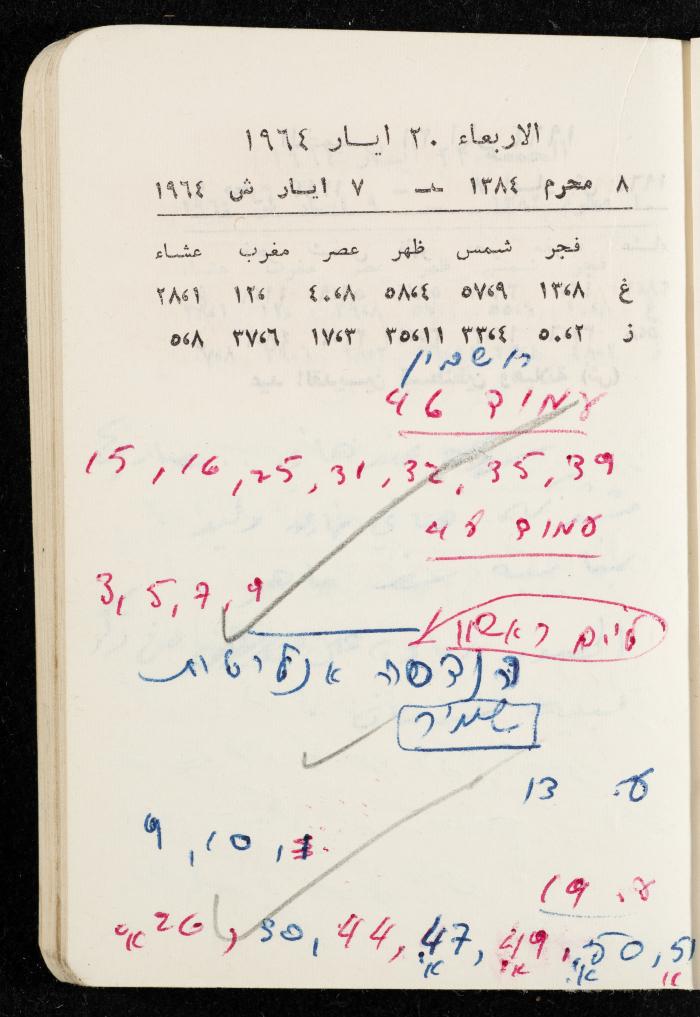 الاربعاء ٢٠ ايار ١٩٦٤
٨ محرم ١٣٨٤ — ٧ ايار ش ١٩٦٤
فجر شمس ظهر عصر مغرب عشاء
غ ١٣٬٨ ٥٧٬٩ ٥٨٬٤ ٤٠٬٨ ١٢٬١ ٢٨٬١
ز ٥٠٬٢ ٣٣٬٤ ٣٥٬١١ ١٧٬٣ ٣٧٬٦ ٥٬٨
חשבון
עמוד 46
15, 16, 25, 31, 32, 35, 39
עמוד 48
3, 5, 7, 9
ליום ראשון
הנדסה אנליטית
שמיר
ע. 13
9, 10, 11
ע. 19
26 א', 30, 44, 47 א', 49 א', 50 א', 51 א'